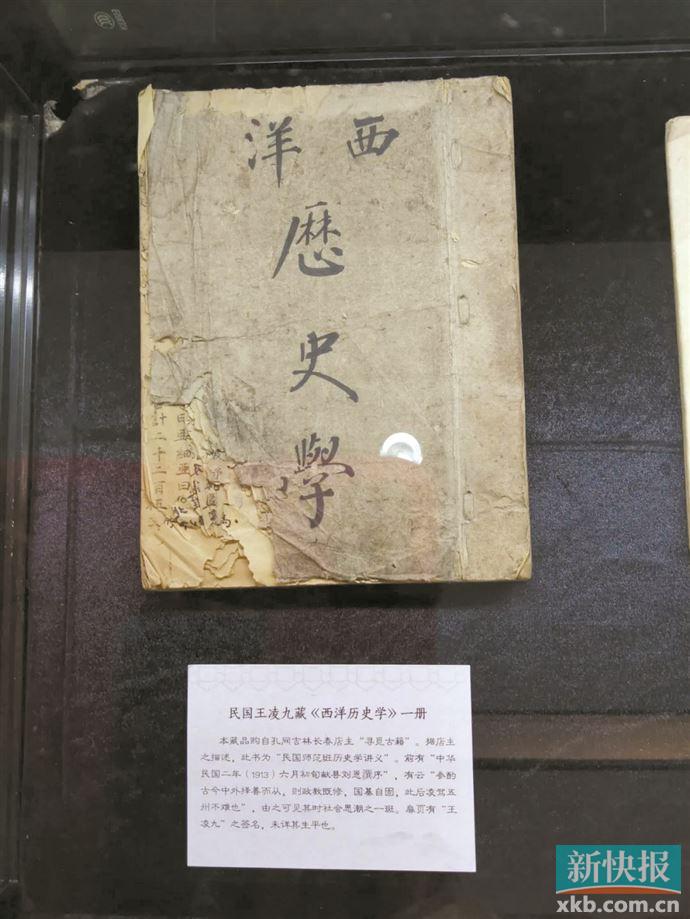 西洋
歷
史
學
民国王凌九藏《西洋历史学》一册
本藏品购自孔网吉林长春店主“寻觅古籍”。据店主
之描述，此书为“民国师范班历史学讲义”。前有“中华
民国二年（1913）六月初旬献县刘恩瀎序”，有云“参酌
古今中外择善而从，则政教既修，国基自固，此后凌驾五
州不难也”，由之可见其时社会思潮之一斑。扉页有“王
凌九”之签名，未详其生平也。
新快报
xkb.com.cn